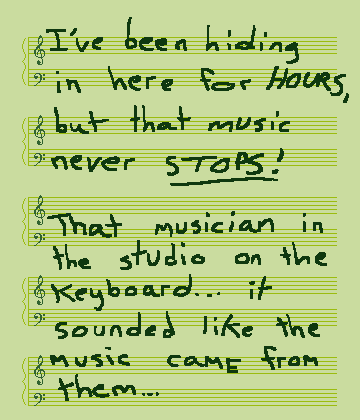 I've been hiding
in here for HOURS,
but that music
never STOPS!
That musician in
the studio on the
keyboard... it
sounded like the
music came from
them...